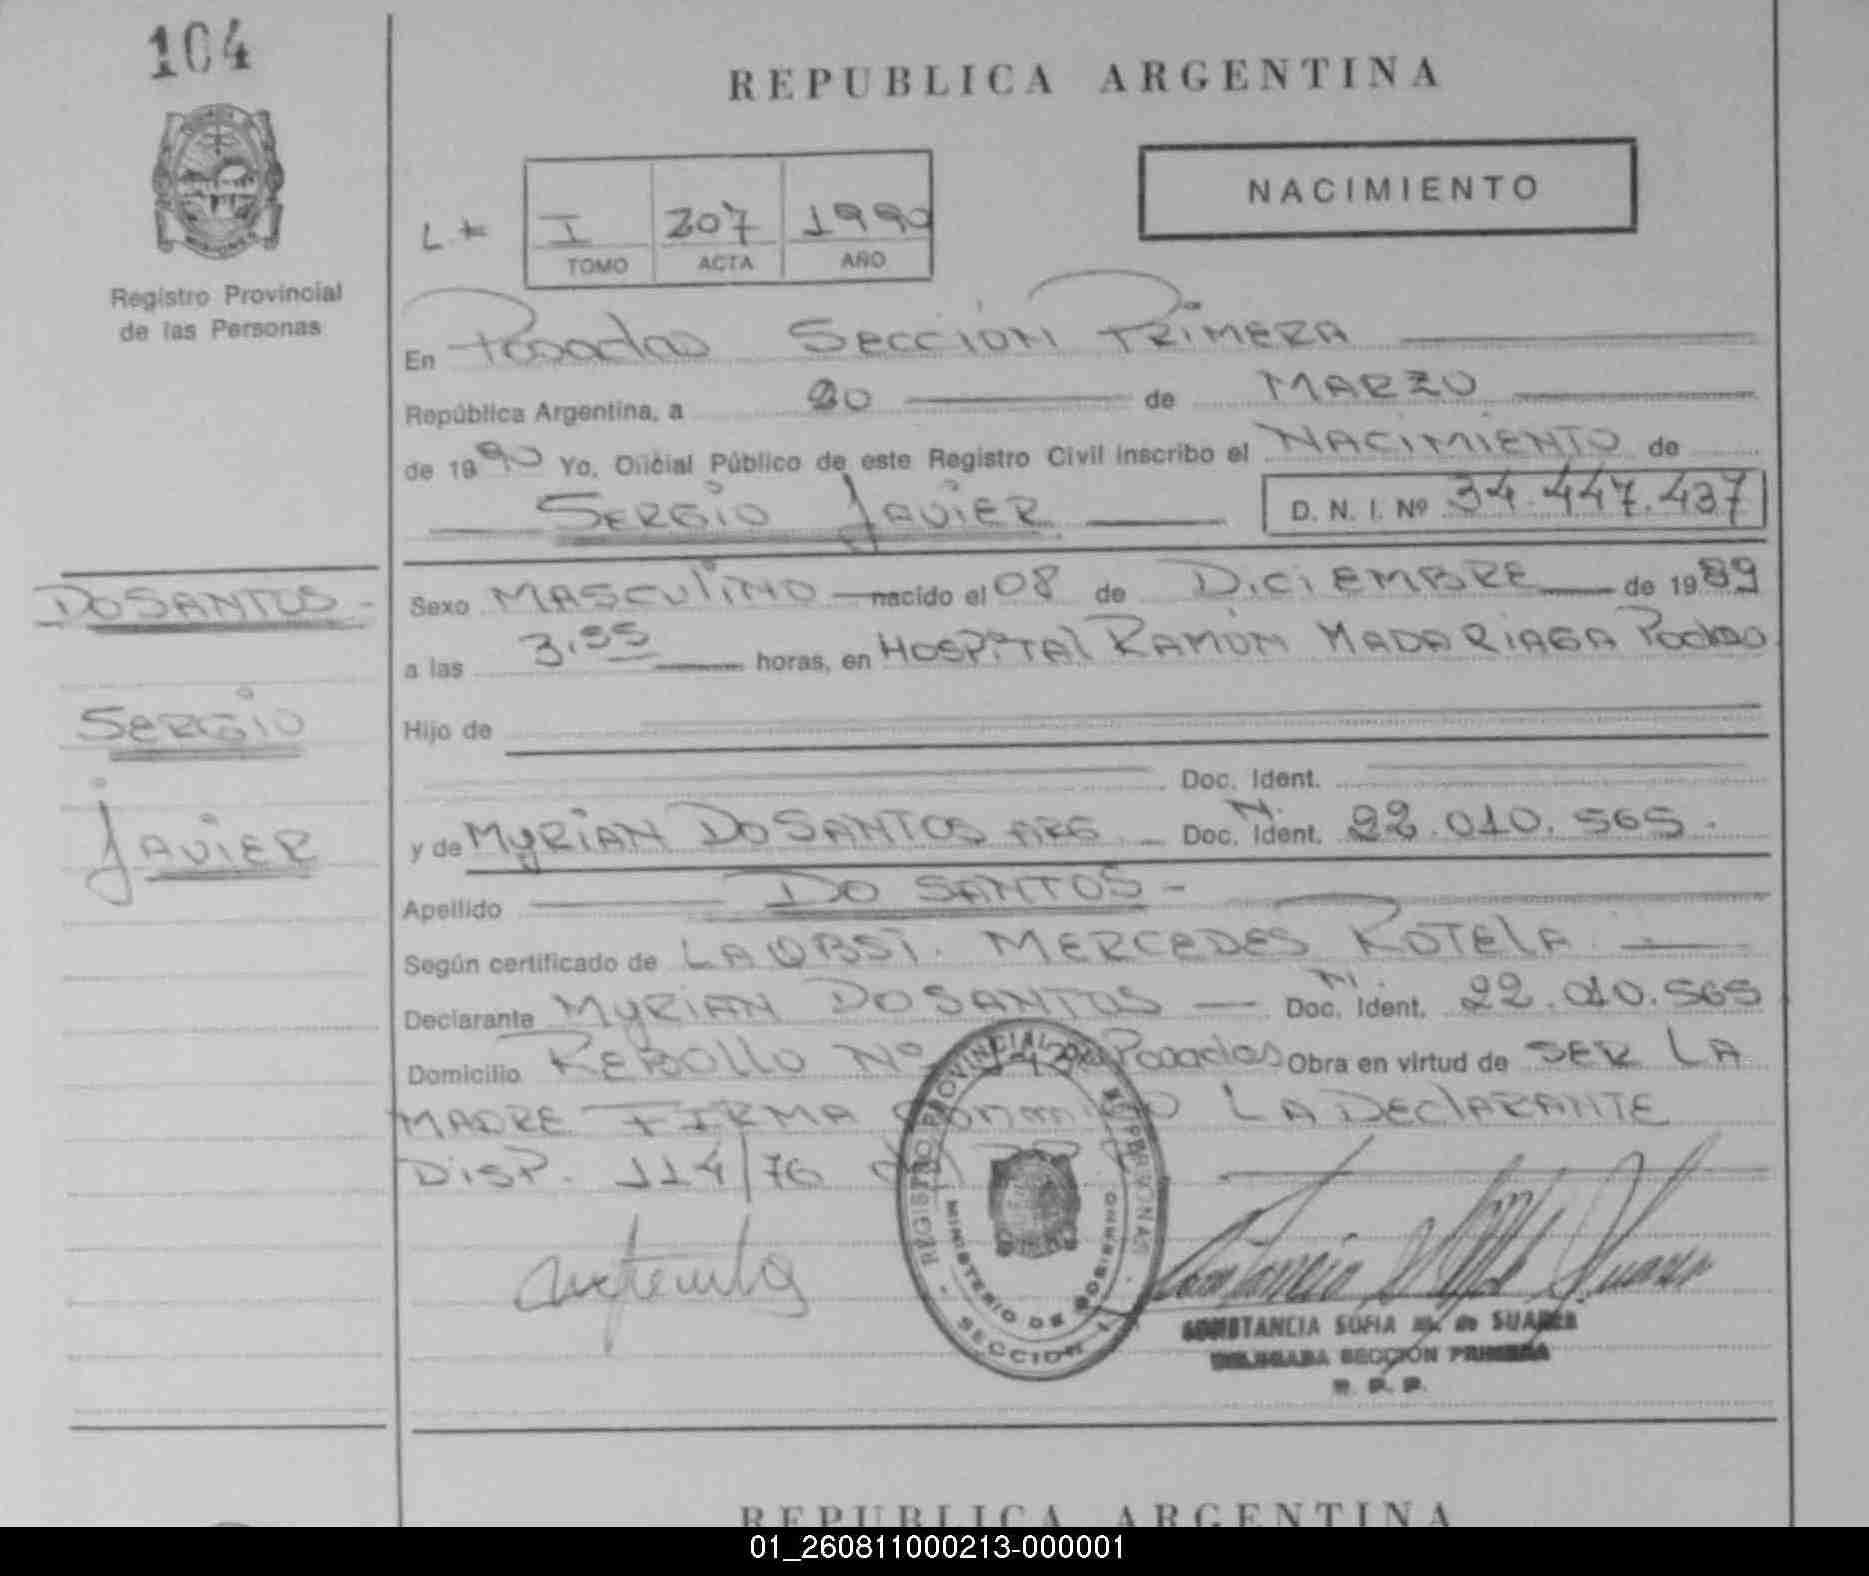 104
REPUBLICA ARGENTINA
NACIMIENTO
L *
I 207 1990
TOMO ACTA AÑO
Registro Provincial
de las Personas
En Posadas Sección Primera
República Argentina, a 20 de MARZO
de 1990 Yo, Oficial Público de este Registro Civil inscribo el NACIMIENTO de
SERGIO JAVIER D. N. I. Nº 34.447.437
DO SANTOS -
SERGIO
JAVIER
Sexo MASCULINO nacido el 08 de DICIEMBRE de 1989
a las 3,55 horas, en HOSPITAL RAMÓN MADARIAGA Posadas
Hijo de
Doc. Ident.
y de MYRIAN DO SANTOS ARG. Doc. N. Ident. 22.010.565.
Apellido DO SANTOS -
Según certificado de LA OBST. MERCEDES ROTELA
Declarante MYRIAN DO SANTOS Doc. N. Ident. 22.010.565
Domicilio REBOLLO Nº Posadas Obra en virtud de SER LA
MADRE FIRMA conmigo LA DECLARANTE
DISP. 114/76
REGISTRO PROVINCIAL DE LAS PERSONAS
MINISTERIO DE GOBIERNO
SECCION I
CONSTANCIA SOFIA M. de SUAREZ
DELEGADA SECCIÓN PRIMERA
R. P. P.
REPUBLICA ARGENTINA
01_260811000213-000001